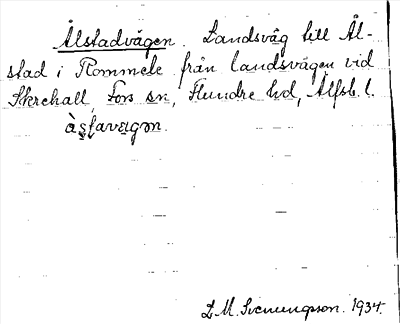 Ålstadvägen. Landsväg till Ål-
stad i Rommele från landsvägen vid
Skrehall, Fors sn, Flundre hd, Älfsb. l.
às̩t̩avειgən.
L. M. Svenungsson. 1934.